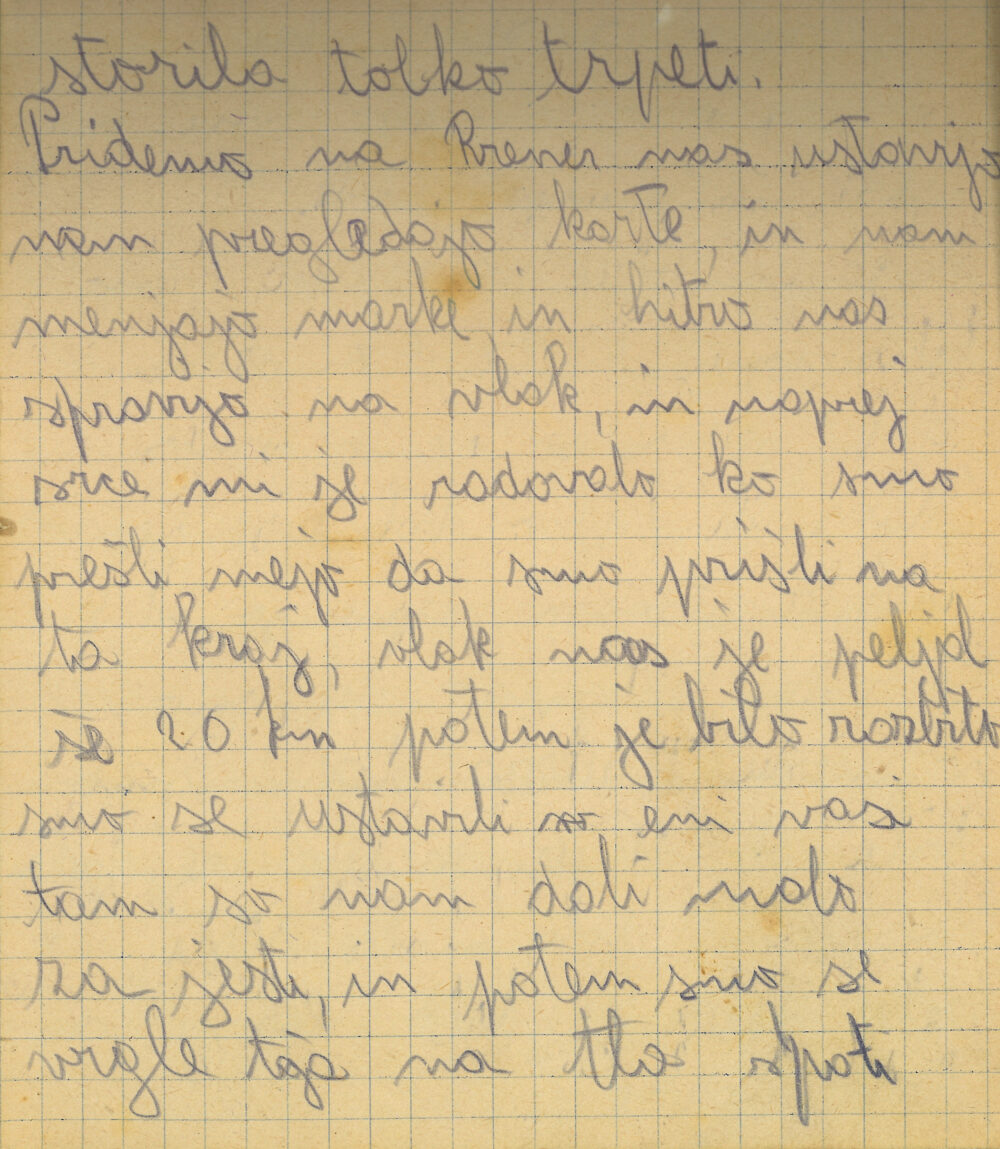 storila tolko trpeti.
Pridemo na Brener nas ustavjo
nam pregledajo karte, in nam
menjajo marke in hitro nas
spravjo na vlak, in naprej
srce mi je radovalo ko smo
prešli mejo da smo prišli na
ta kraj, vlak nas je peljal
še 20 km potem je bilo razbito
smo se ustavili eni vasi
tam so nam dali malo
za jesti, in potem smo se
vrgle tga na tla spati